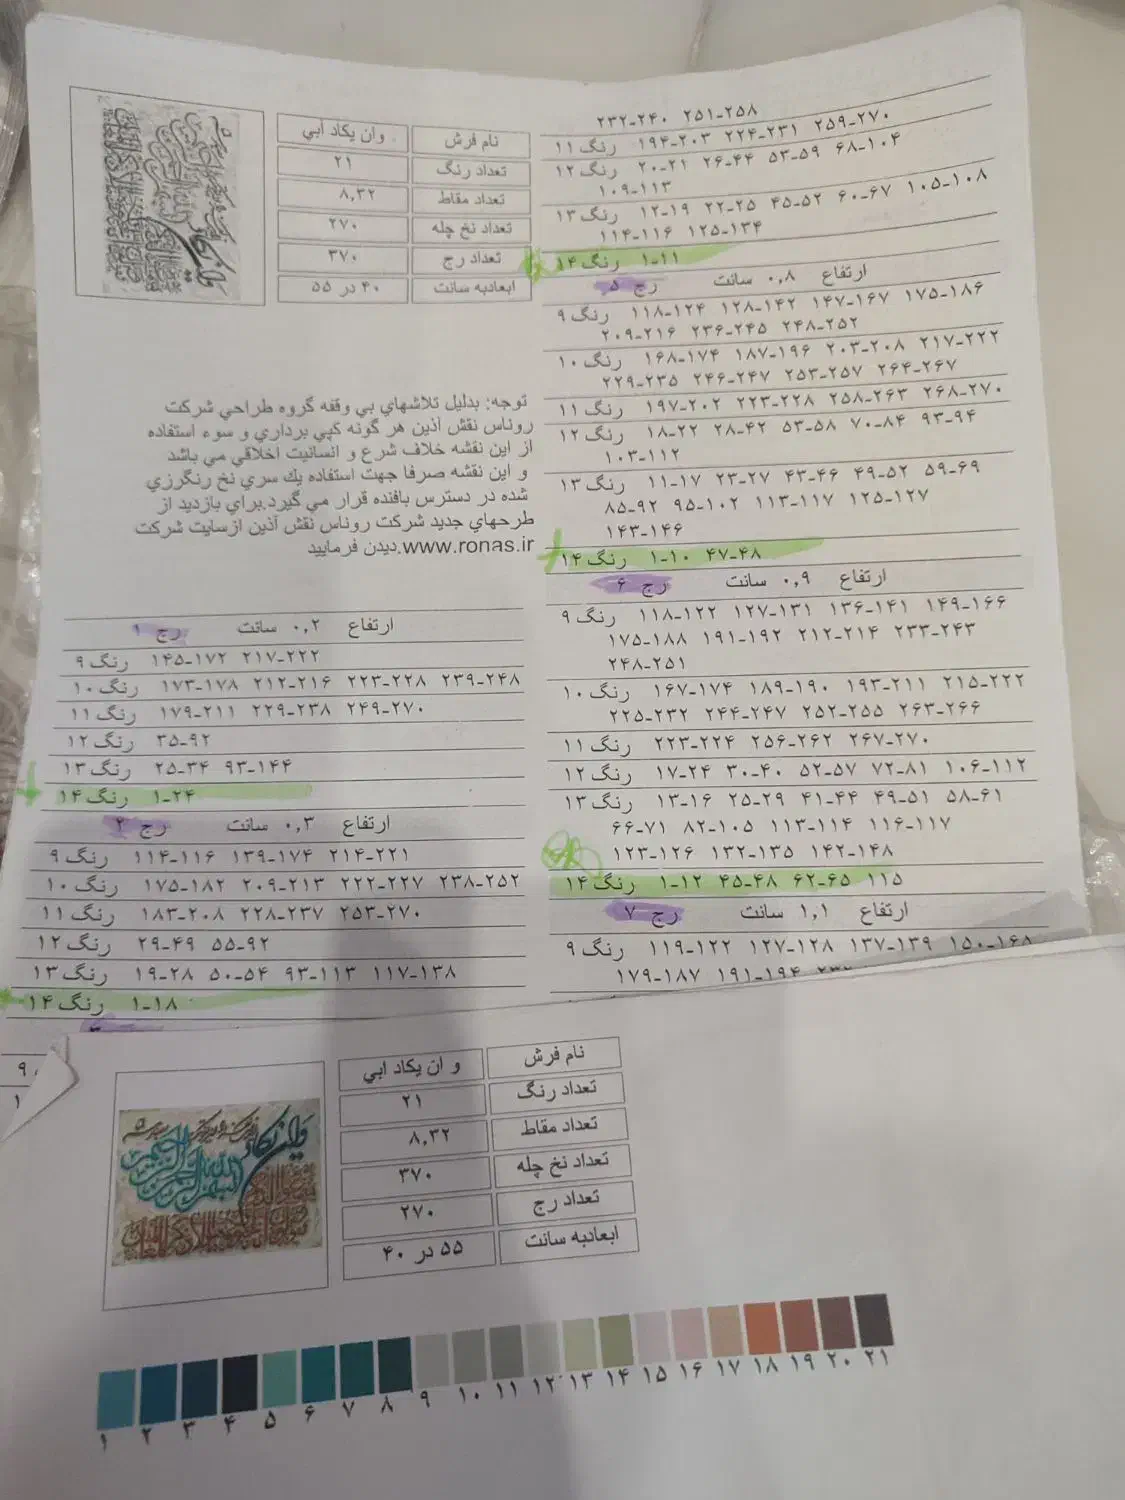 نام فرش وان يكاد ابي
تعداد رنگ ۲۱
تعداد مقاط ۸,۳۲
تعداد نخ چله ۲۷۰
تعداد رج ۳۷۰
ابعادبه سانت ۴۰ در ۵۵
توجه: بدليل تلاشهاي بي وقفه گروه طراحي شركت
روناس نقش آذين هر گونه كپي برداري و سوء استفاده
از اين نقشه خلاف شرع و انسانيت اخلاقي مي باشد
و اين نقشه صرفا جهت استفاده يك سري نخ رنگرزي
شده در دسترس بافنده قرار مي گيرد.براي بازديد از
طرحهاي جديد شركت روناس نقش آذين ازسايت شركت
www.ronas.ir.ديدن فرماييد
رج ۱ ارتفاع ۰,۲ سانت
رنگ ۹ ۱۴۵-۱۷۲ ۲۱۷-۲۲۲
رنگ ۱۰ ۱۷۳-۱۷۸ ۲۱۲-۲۱۶ ۲۲۳-۲۲۸ ۲۳۹-۲۴۸
رنگ ۱۱ ۱۷۹-۲۱۱ ۲۲۹-۲۳۸ ۲۴۹-۲۷۰
رنگ ۱۲ ۳۵-۹۲
رنگ ۱۳ ۲۵-۳۴ ۹۳-۱۴۴
رنگ ۱۴ ۱-۲۴
رج ۲ ارتفاع ۰,۳ سانت
رنگ ۹ ۱۱۴-۱۱۶ ۱۳۹-۱۷۴ ۲۱۴-۲۲۱
رنگ ۱۰ ۱۷۵-۱۸۲ ۲۰۹-۲۱۳ ۲۲۲-۲۲۷ ۲۳۸-۲۵۲
رنگ ۱۱ ۱۸۳-۲۰۸ ۲۲۸-۲۳۷ ۲۵۳-۲۷۰
رنگ ۱۲ ۲۹-۴۹ ۵۵-۹۲
رنگ ۱۳ ۱۹-۲۸ ۵۰-۵۴ ۹۳-۱۱۳ ۱۱۷-۱۳۸
رنگ ۱۴ ۱-۱۸
۲۳۲-۲۴۰ ۲۵۱-۲۵۸
رنگ ۱۱ ۱۹۴-۲۰۳ ۲۲۴-۲۳۱ ۲۵۹-۲۷۰
رنگ ۱۲ ۲۰-۲۱ ۲۶-۴۴ ۵۳-۵۹ ۶۸-۱۰۴
۱۰۹-۱۱۳
رنگ ۱۳ ۱۲-۱۹ ۲۲-۲۵ ۴۵-۵۲ ۶۰-۶۷ ۱۰۵-۱۰۸
۱۱۴-۱۱۶ ۱۲۵-۱۳۴
رنگ ۱۴ ۱-۱۱
رج ۵ ارتفاع ۰,۸ سانت
رنگ ۹ ۱۱۸-۱۲۴ ۱۲۸-۱۴۲ ۱۴۷-۱۶۷ ۱۷۵-۱۸۶
۲۰۹-۲۱۶ ۲۳۶-۲۴۵ ۲۴۸-۲۵۲
رنگ ۱۰ ۱۶۸-۱۷۴ ۱۸۷-۱۹۶ ۲۰۳-۲۰۸ ۲۱۷-۲۲۲
۲۲۹-۲۳۵ ۲۴۶-۲۴۷ ۲۵۳-۲۵۷ ۲۶۴-۲۶۷
رنگ ۱۱ ۱۹۷-۲۰۲ ۲۲۳-۲۲۸ ۲۵۸-۲۶۳ ۲۶۸-۲۷۰
رنگ ۱۲ ۱۸-۲۲ ۲۸-۴۲ ۵۳-۵۸ ۷۰-۸۴ ۹۳-۹۴
۱۰۳-۱۱۲
رنگ ۱۳ ۱۱-۱۷ ۲۳-۲۷ ۴۳-۴۶ ۴۹-۵۲ ۵۹-۶۹
۸۵-۹۲ ۹۵-۱۰۲ ۱۱۳-۱۱۷ ۱۲۵-۱۲۷
۱۴۳-۱۴۶
رنگ ۱۴ ۱-۱۰ ۴۷-۴۸
رج ۶ ارتفاع ۰,۹ سانت
رنگ ۹ ۱۱۸-۱۲۲ ۱۲۷-۱۳۱ ۱۳۶-۱۴۱ ۱۴۹-۱۶۶
۱۷۵-۱۸۸ ۱۹۱-۱۹۲ ۲۱۲-۲۱۴ ۲۳۳-۲۴۳
۲۴۸-۲۵۱
رنگ ۱۰ ۱۶۷-۱۷۴ ۱۸۹-۱۹۰ ۱۹۳-۲۱۱ ۲۱۵-۲۲۲
۲۲۵-۲۳۲ ۲۴۴-۲۴۷ ۲۵۲-۲۵۵ ۲۶۳-۲۶۶
رنگ ۱۱ ۲۲۳-۲۲۴ ۲۵۶-۲۶۲ ۲۶۷-۲۷۰
رنگ ۱۲ ۱۷-۲۴ ۳۰-۴۰ ۵۲-۵۷ ۷۲-۸۱ ۱۰۶-۱۱۲
رنگ ۱۳ ۱۳-۱۶ ۲۵-۲۹ ۴۱-۴۴ ۴۹-۵۱ ۵۸-۶۱
۶۶-۷۱ ۸۲-۱۰۵ ۱۱۳-۱۱۴ ۱۱۶-۱۱۷
۱۲۳-۱۲۶ ۱۳۲-۱۳۵ ۱۴۲-۱۴۸
رنگ ۱۴ ۱-۱۲ ۴۵-۴۸ ۶۲-۶۵ ۱۱۵
رج ۷ ارتفاع ۱,۱ سانت
رنگ ۹ ۱۱۹-۱۲۲ ۱۲۷-۱۲۸ ۱۳۷-۱۳۹ ۱۵۰-۱۶۸
۱۷۹-۱۸۷ ۱۹۱-۱۹۴
۹
۱
نام فرش و ان يكاد ابي
تعداد رنگ ۲۱
تعداد مقاط ۸,۳۲
تعداد نخ چله ۳۷۰
تعداد رج ۲۷۰
ابعادبه سانت ۵۵ در ۴۰
۱ ۲ ۳ ۴ ۵ ۶ ۷ ۸ ۹ ۱۰ ۱۱ ۱۲ ۱۳ ۱۴ ۱۵ ۱۶ ۱۷ ۱۸ ۱۹ ۲۰ ۲۱